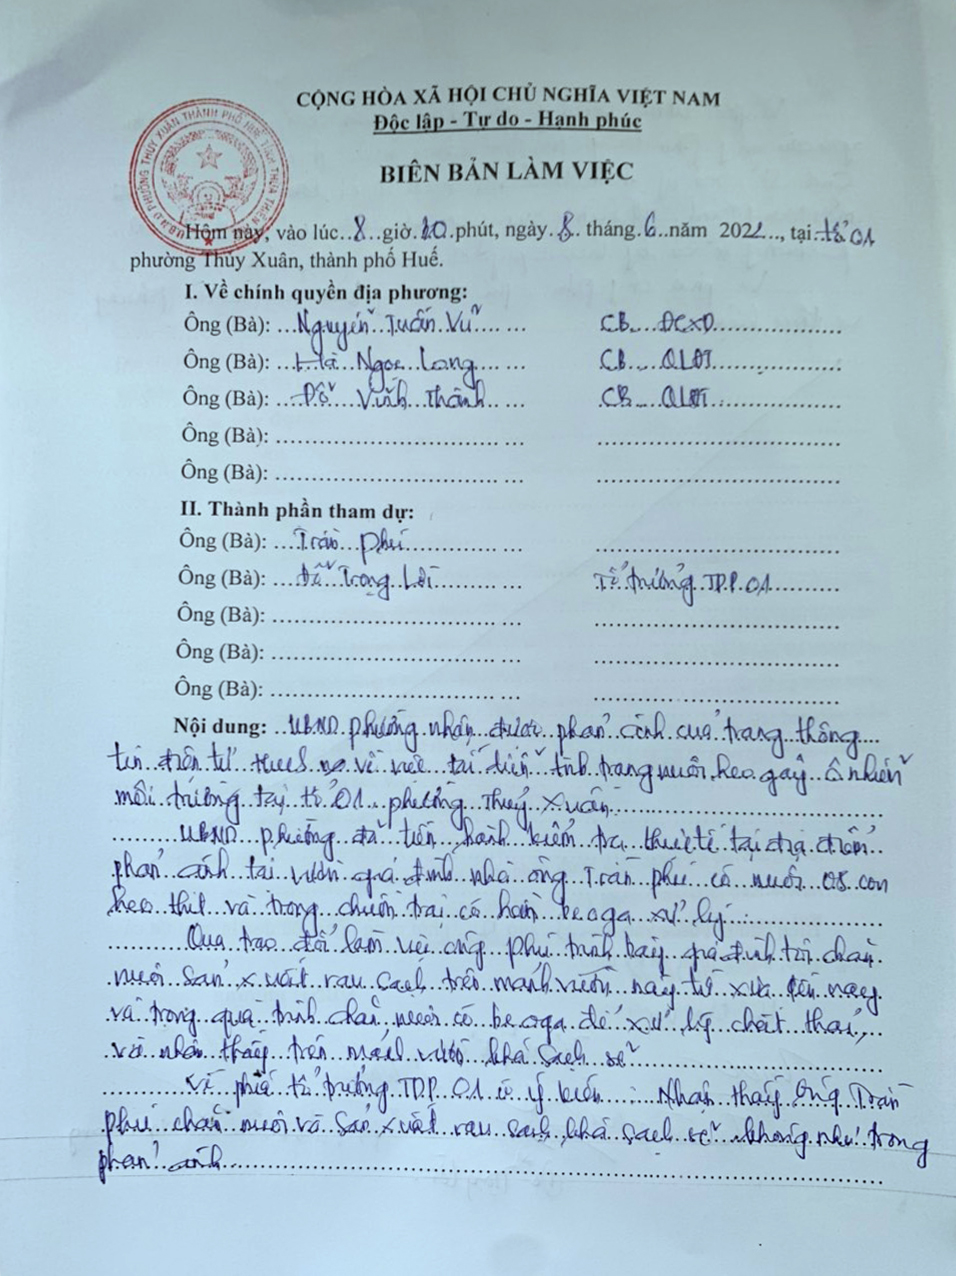 CỘNG HÒA XÃ HỘI CHỦ NGHĨA VIỆT NAM
Độc lập - Tự do - Hạnh phúc
BIÊN BẢN LÀM VIỆC
U.B.N.D PHƯỜNG THỦY XUÂN THÀNH PHỐ HUẾ, TỈNH THỪA THIÊN HUẾ
Hôm này, vào lúc..8..giờ.20.phút, ngày.8. tháng.6..năm 2022.., tại.tổ 01
phường Thủy Xuân, thành phố Huế.
I. Về chính quyền địa phương:
Ông (Bà): ...Nguyễn Tuấn Vũ... CB ĐCXD
Ông (Bà): ...Hà Ngọc Long... CB QLĐT
Ông (Bà): ...Đỗ Vinh Thành... CB QLĐT
Ông (Bà):
Ông (Bà):
II. Thành phần tham dự:
Ông (Bà): ...Trần Phú...
Ông (Bà): ...Trọng Lợi... Tổ trưởng TDP.01
Ông (Bà):
Ông (Bà):
Ông (Bà):
Nội dung: UBND phường nhận được phản ánh của trang thông
tin điện tử về việc tái diễn tình trạng nuôi heo gây ô nhiễm
môi trường tại tổ 01 phường Thủy Xuân
UBND phường đã tiến hành kiểm tra thực tế tại địa điểm
phản ánh tại vườn gia đình nhà ông Trần Phú có nuôi 08 con
heo thịt và trong chuồng trại có hầm beoga xử lý
Qua trao đổi làm việc ông Phú trình bày gia đình tôi chăn
nuôi sản xuất rau sạch trên mảnh vườn này từ xưa đến nay
và trong quá trình chăn nuôi có beoga để xử lý chất thải,
và nhận thấy trên mảnh vườn khá sạch sẽ
Về phía tổ trưởng TDP.01 có ý kiến : Nhận thấy Ông Trần
Phú chăn nuôi và sản xuất rau sạch khá sạch sẽ không như trong
phản ánh